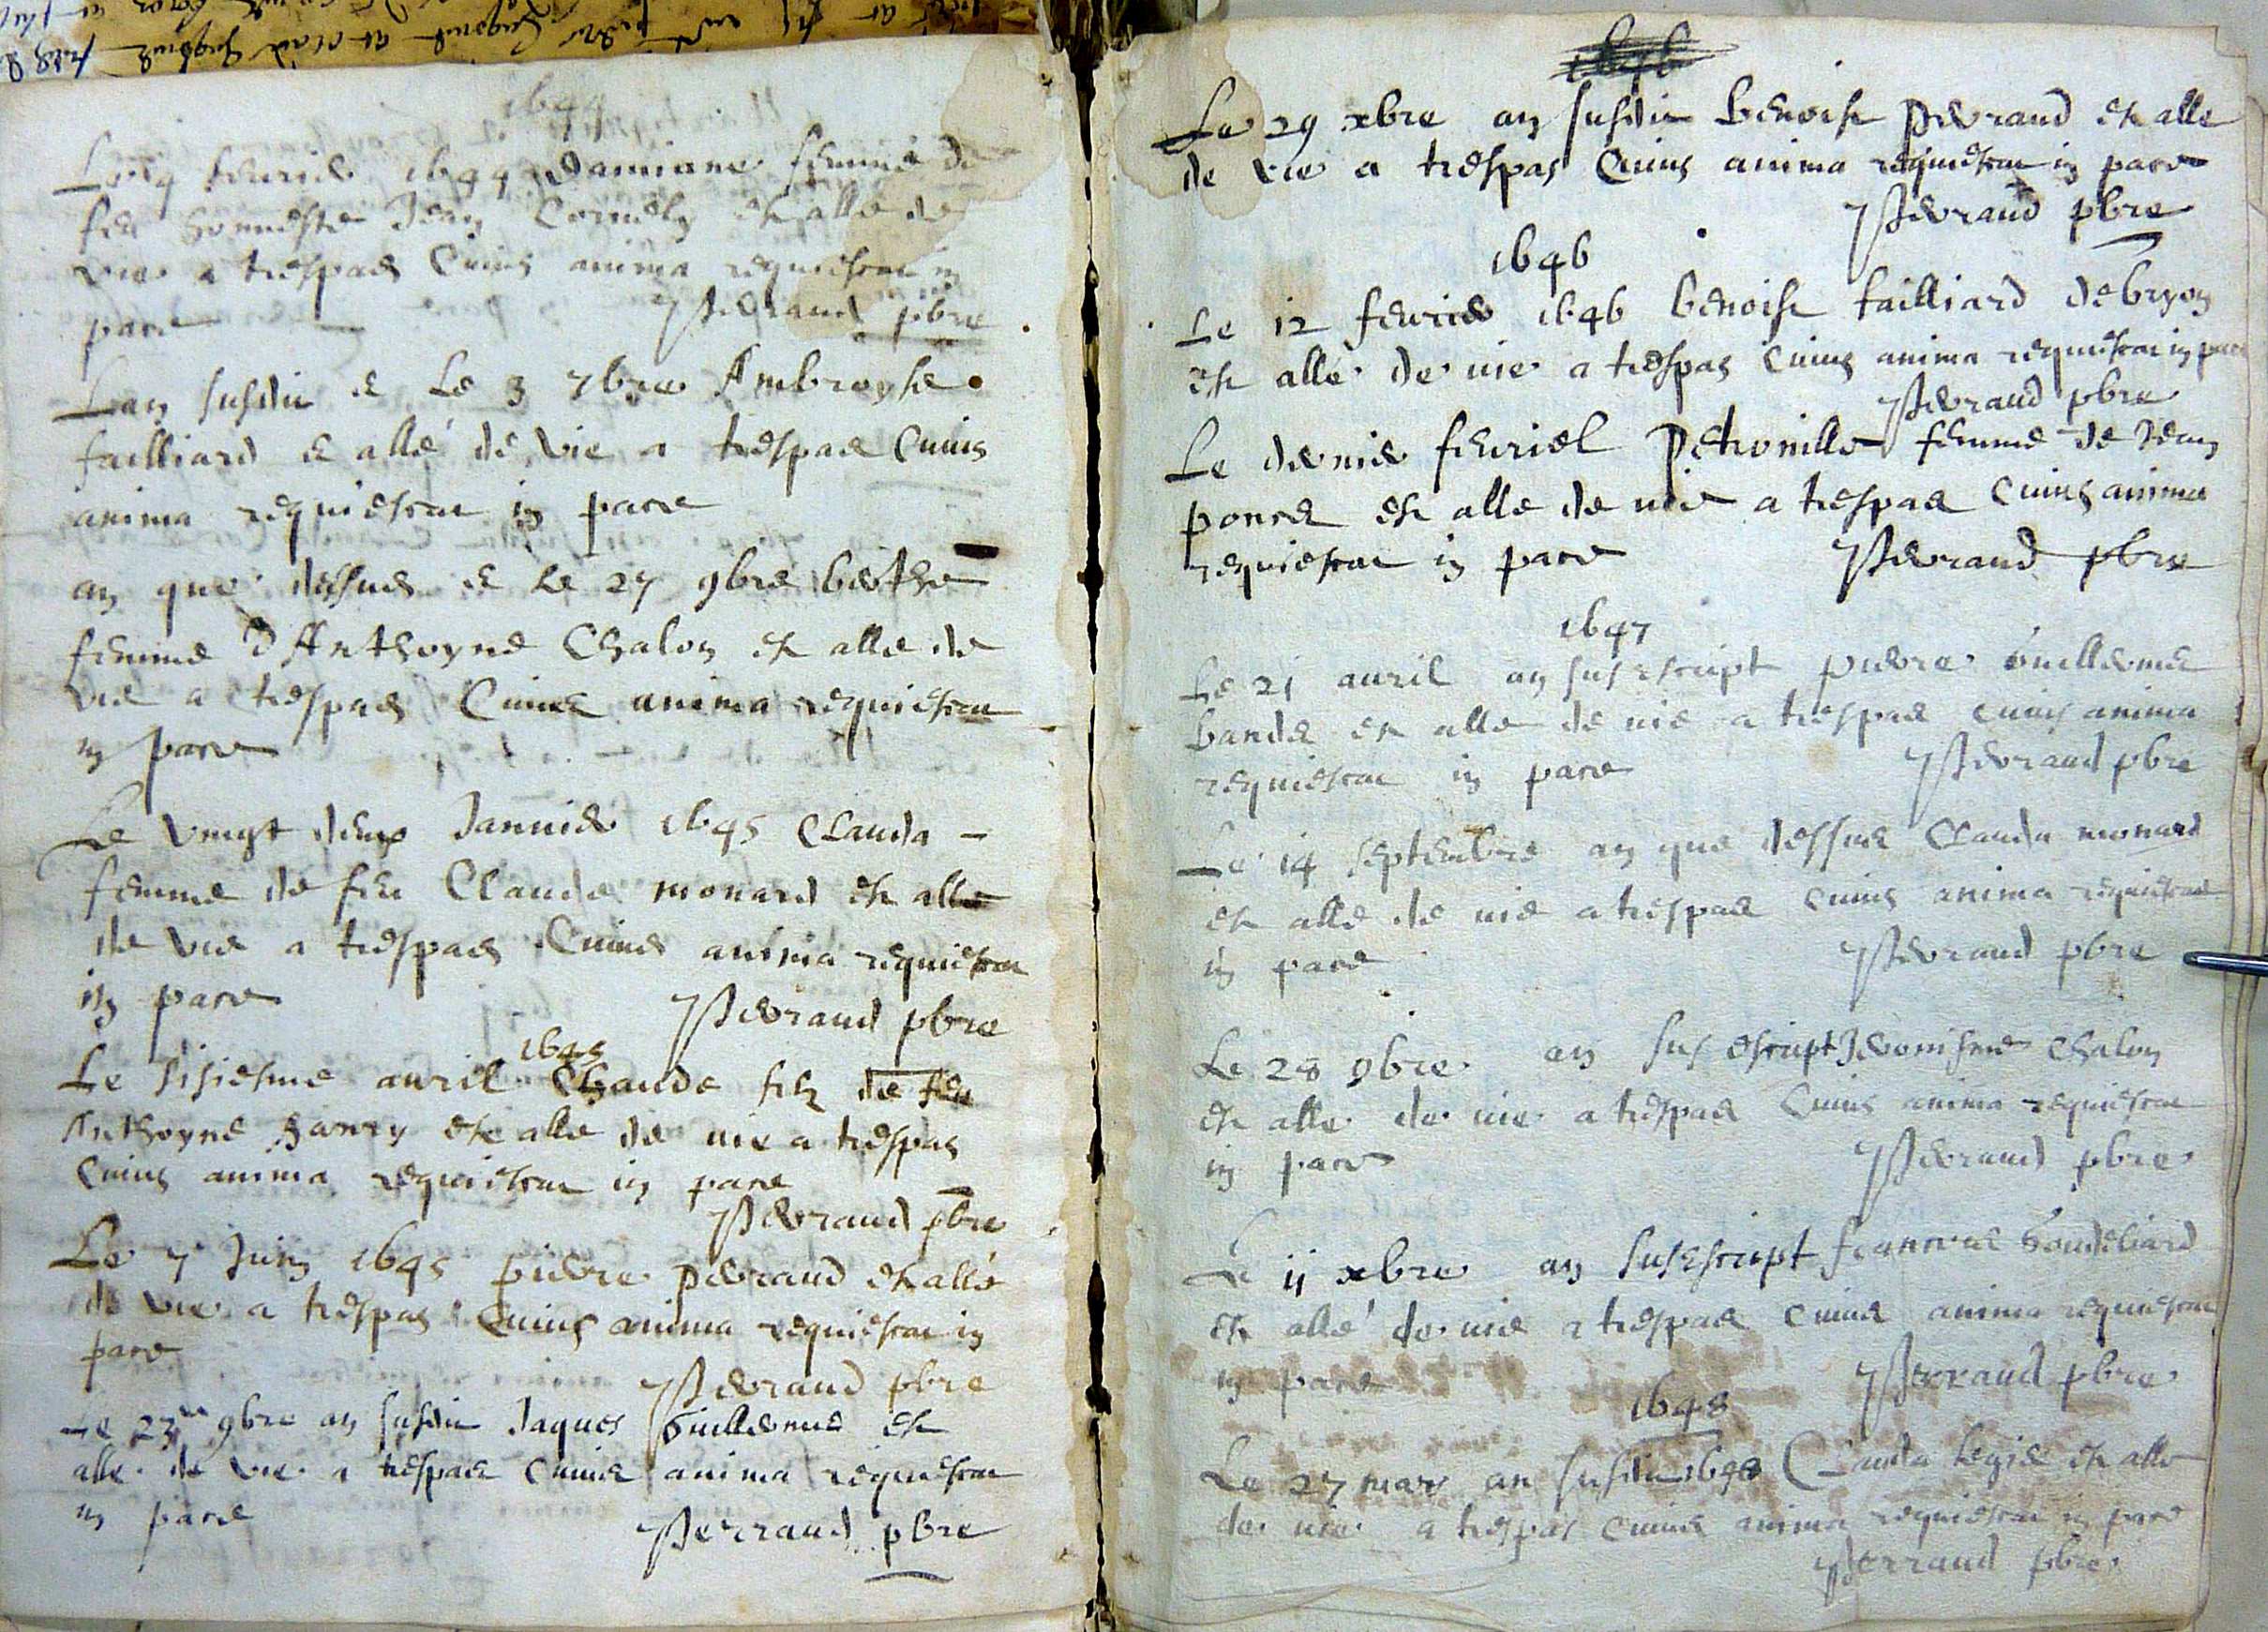 1644
Le feurier 1644 Damiane femme de
feu honneste Jean Cornely est alle de
vie a trespas Cuius anima requiescat in
pace Perraud pbre
Lan susdit & Le 3 7bre Ambroyse
failliard e allé de vie a trespas Cuius
anima requiescat in pace
an que dessus & Le 27 9bre berthe
femme D'Anthoyne Chalon est alle de
vie a trespas Cuius anima requiescat
in pace
Le vingt deux Januier 1645 Clauda
femme de feu Claude monard est alle
de vie a trespas Cuius anima requiescat
in pace Perraud pbre
1645
Le sisiesme auril Claude filz de feu
Anthoyne est alle de vie a trespas
Cuius anima requiescat in pace
Perraud pbre
Le 7 Juin 1645 pierre perraud est allé
de vie a trespas Cuius anima requiescat in
pace
Perraud pbre
Le 23me 9bre an susdit Jaques Guillerme est
alle de vie a trespas Cuius anima requiescat
in pace
Perraud pbre
1646
Le 29 xbre an susdit Benoist perraud est alle
de vie a trespas Cuius anima requiescat in pace
Perraud pbre
1646
Le 12 feurier 1646 benoist failliard de bryon
est allé de vie a trespas Cuius anima requiescat in pace
Perraud pbre
Le dernier feuriel petronille femme de Jean
ponce est alle de vie a trespas Cuius anima
requiescat in pace Perraud pbre
1647
Le 21 auril an susescript pierre Guillerme
bande est alle de vie a trespas Cuius anima
requiescat in pace Perraud pbre
Le 14 septembre an que dessus Clauda monard
est allé de vie a trespas Cuius anima requiescat
in pace Perraud pbre
Le 28 9bre an sus escript Jeronisme Chalon
est alle de vie a trespas Cuius anima requiescat
in pace Perraud pbre
Le 11 xbre an susescript Goudeliard
est allé de vie a trespas Cuius anima requiescat
in pace Perraud pbre
1648
Le 27 mars an susdit 1648 Clauda est alle
de vie a trespas Cuius anima requiescat in pace
Perraud pbre